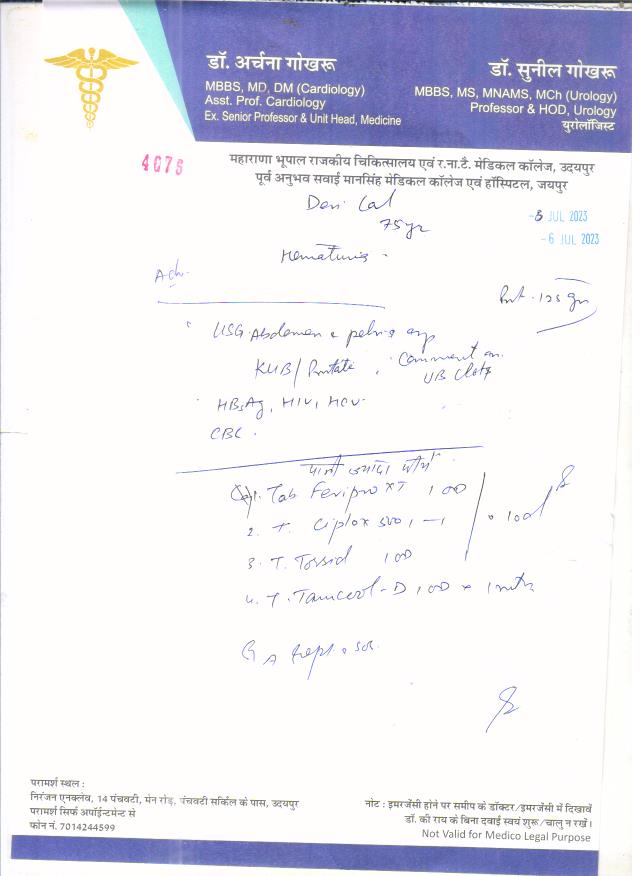 डॉ. अर्चना गोखरू
MBBS, MD, DM (Cardiology)
Asst. Prof. Cardiology
Ex. Senior Professor & Unit Head, Medicine
डॉ. सुनील गोखरू
MBBS, MS, MNAMS, MCh (Urology)
Professor & HOD, Urology
यूरोलॉजिस्ट
4075
महाराणा भूपाल राजकीय चिकित्सालय एवं र.ना.टै. मेडिकल कॉलेज, उदयपुर
पूर्व अनुभव सवाई मानसिंह मेडिकल कॉलेज एवं हॉस्पिटल, जयपुर
Lal
75 yr
JUL 2023
-6 JUL 2023
Hematuria
Adv.
125 gm
USG. Abdomen & pelvis
KUB/Prostate, Comment on
UB Clots
HBsAg, HIV, HCV
CBC.
पानी ज्यादा पीयें
Tab Feripro XT 1 OD
2. T. Ciplox 500 1-1
3. T. 1 OD
4. T. - D 1 OD x 1 mth
परामर्श स्थल :
निरंजन एनक्लेव, 14 पंचवटी, मेन रोड़, पंचवटी सर्किल के पास, उदयपुर
परामर्श सिर्फ अपॉईन्टमेन्ट से
फोन नं. 7014244599
नोट : इमरजेंसी होने पर समीप के डॉक्टर/इमरजेंसी में दिखावें
डॉ. की राय के बिना दवाई स्वयं शुरू/चालु न रखें।
Not Valid for Medico Legal Purpose